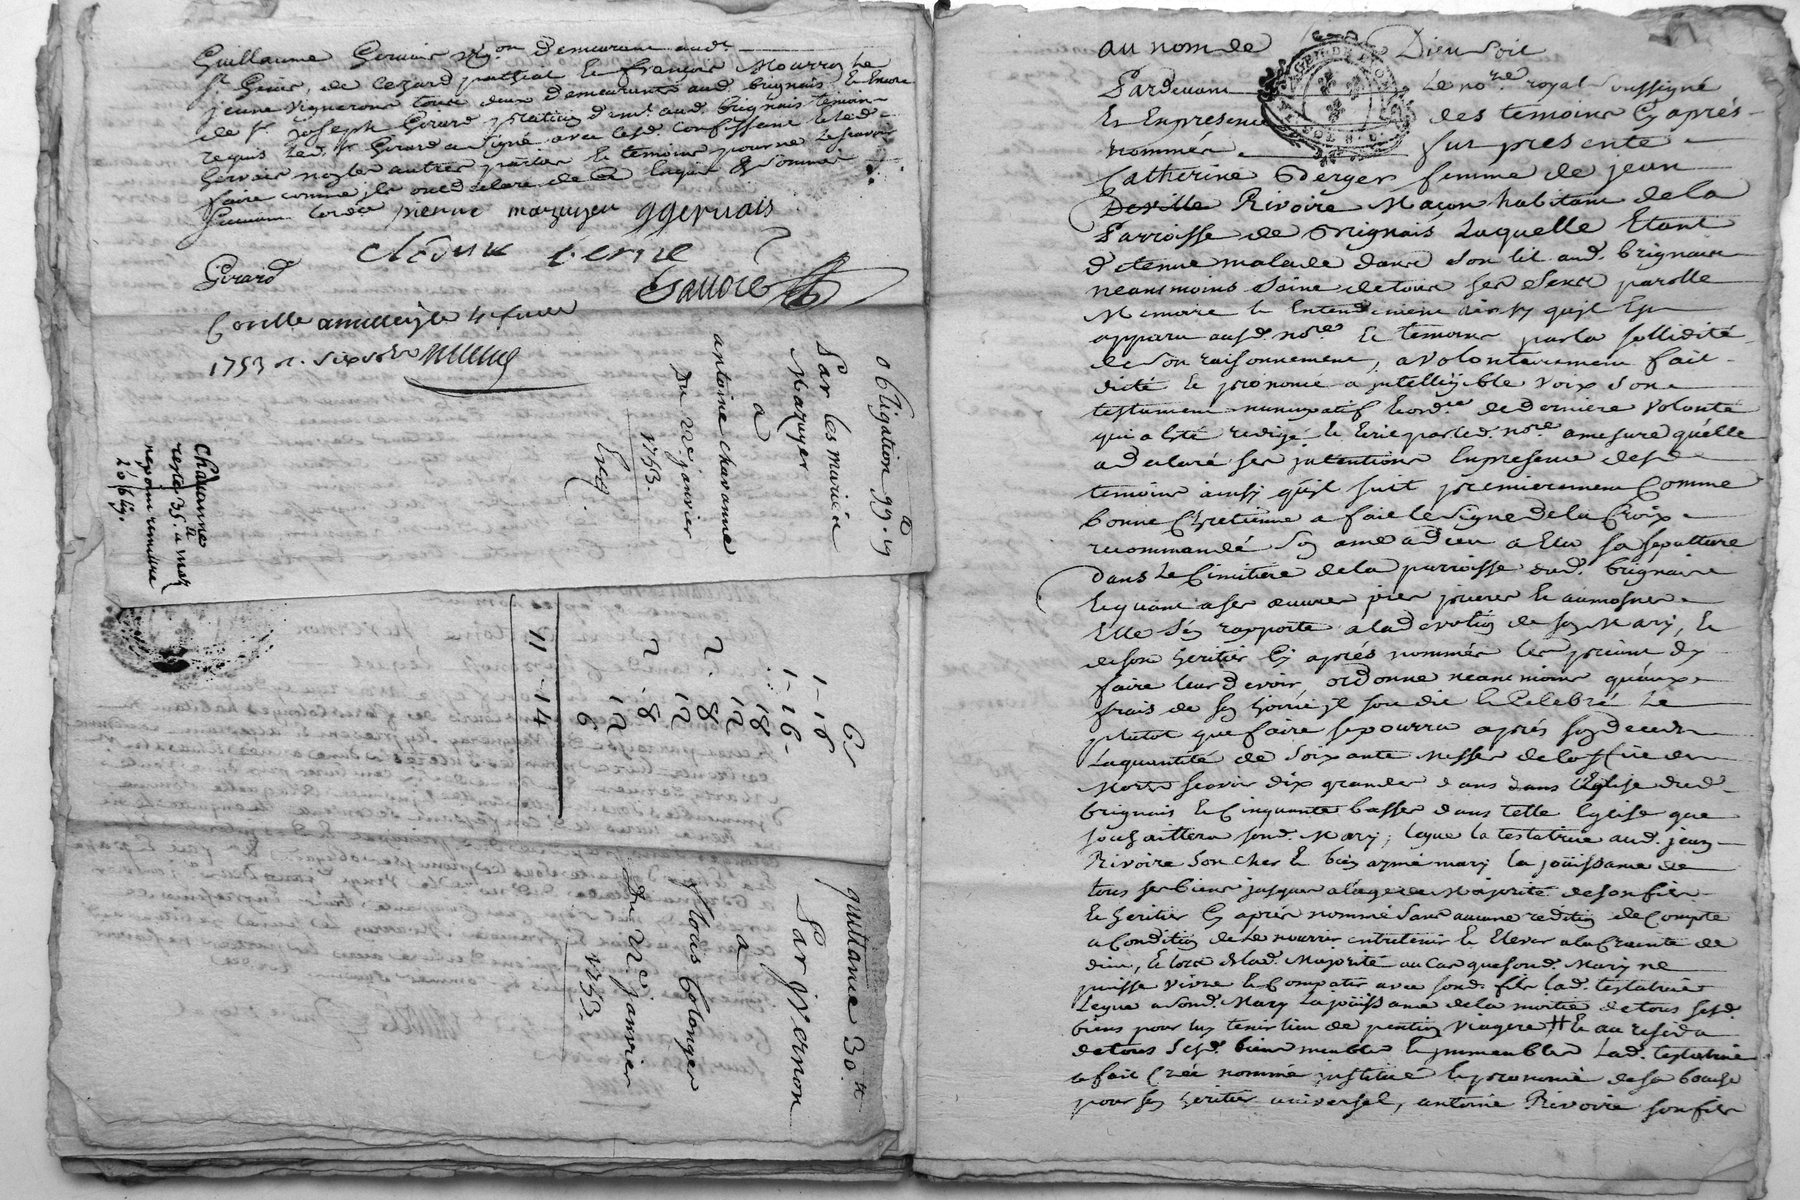 Guillaume Gervais demeurant audt
St Genis, de
jeune vignerons tous deux demeurants aud. brignais Et Encore
de Sr. joseph Girard praticien demt. aud. brignais temoins
requis led. Sr Girard a signé avec lesd. confessant et led.
Gervais non les autres parties Et temoins pour ne le scavoir
faire comme ils ont declaré de ce Enquis & sommés
pierre mazuyer ggervais
claude
Girard
Conollé a le 4e fevrier
1753 R. six sols
obligation 99.tt 19
Par les mariés
Mazuyer
a
antoine chavanne
Du 22e. janvier
1753.
Exp.
Chavanne
reste 35.tt a
1-16
1-16-
18
12
2. 8
12
2. 8.
12
6
11-14
quittance 30.tt
Par j Vernon
a
louis Colonges
Du 22e. janvier
1753.
au nom de Dieu soit
Pardevant Le nore. royal soussigné
Et En presence des temoins cy aprés
nommés. fut presente
Catherine Berger femme de jean
Deville Rivoire Maçon habitant de la
Parroisse de Brignais Laquelle Etant
detenue malade dans son lit aud. brignais
neantmoins saine de tous ses sens parolle
Memoire Et Entendement ainsy qu'jl Est
apparu ausd. nore. Et temoins par la sollidité
de son raisonnement, a volontairement fait
dicté Et prononcé a jntelligible voix son
testament nuncupatif Et ordce. de derniere volonté
qui a Eté redigé Et Ecrit par led. nore. amesure qu'elle
a declaré ses jntentions En presence desd.
temoins ainsy qu'jl suit premierement Comme
bonne Chretienne a fait le signe de la Croix
recommandé son ame a dieu a Elu sa sepulture
dans Le Cimitiere de la parroisse dud. brignais
Et quant a ses œuvres pies prieres Et aumosnes
Elle s'en rapporte a la devotion de son Mary, Et
de son heritier cy aprés nommés les priant d'y
faire leur devoir, ordonne neantmoins qu'aux
frais de son hoirie jl soit dit Et Celebré Le
plutôt que faire se pourra aprés son decés
La quantité de soixante Messes de l'office des
Morts scavoir dix grandes dans l'Eglise dud.
brignais Et Cinquante basses dans telle Eglise que
souhaittera sond. Mary; legue la testatrice aud. jean
Rivoire son cher Et bien aymé mary la joüissance de
tous ses biens jusques a l'age de Majorité de son fils
Et heritier cy aprés nommé sans aucune redition de Compte
a Condition de Le nourrir entretenir Et Elever a la Crainte de
dieu, Et lors de lad. Majorité au cas que sond. Mary ne
puisse vivre Et Compatir avec sond. fils lad. testatrice
Legue a sond. Mary La joüissance de la moitié de tous sesd.
biens pour luy tenir lieu de pention viagere # Et au residu
de tous sesd. biens meubles Et jmmeubles Lad. testatrice
a fait Créé nommé jnstitué Et prononcé de sa bouche
pour son heritier universel, antoine Rivoire son fils